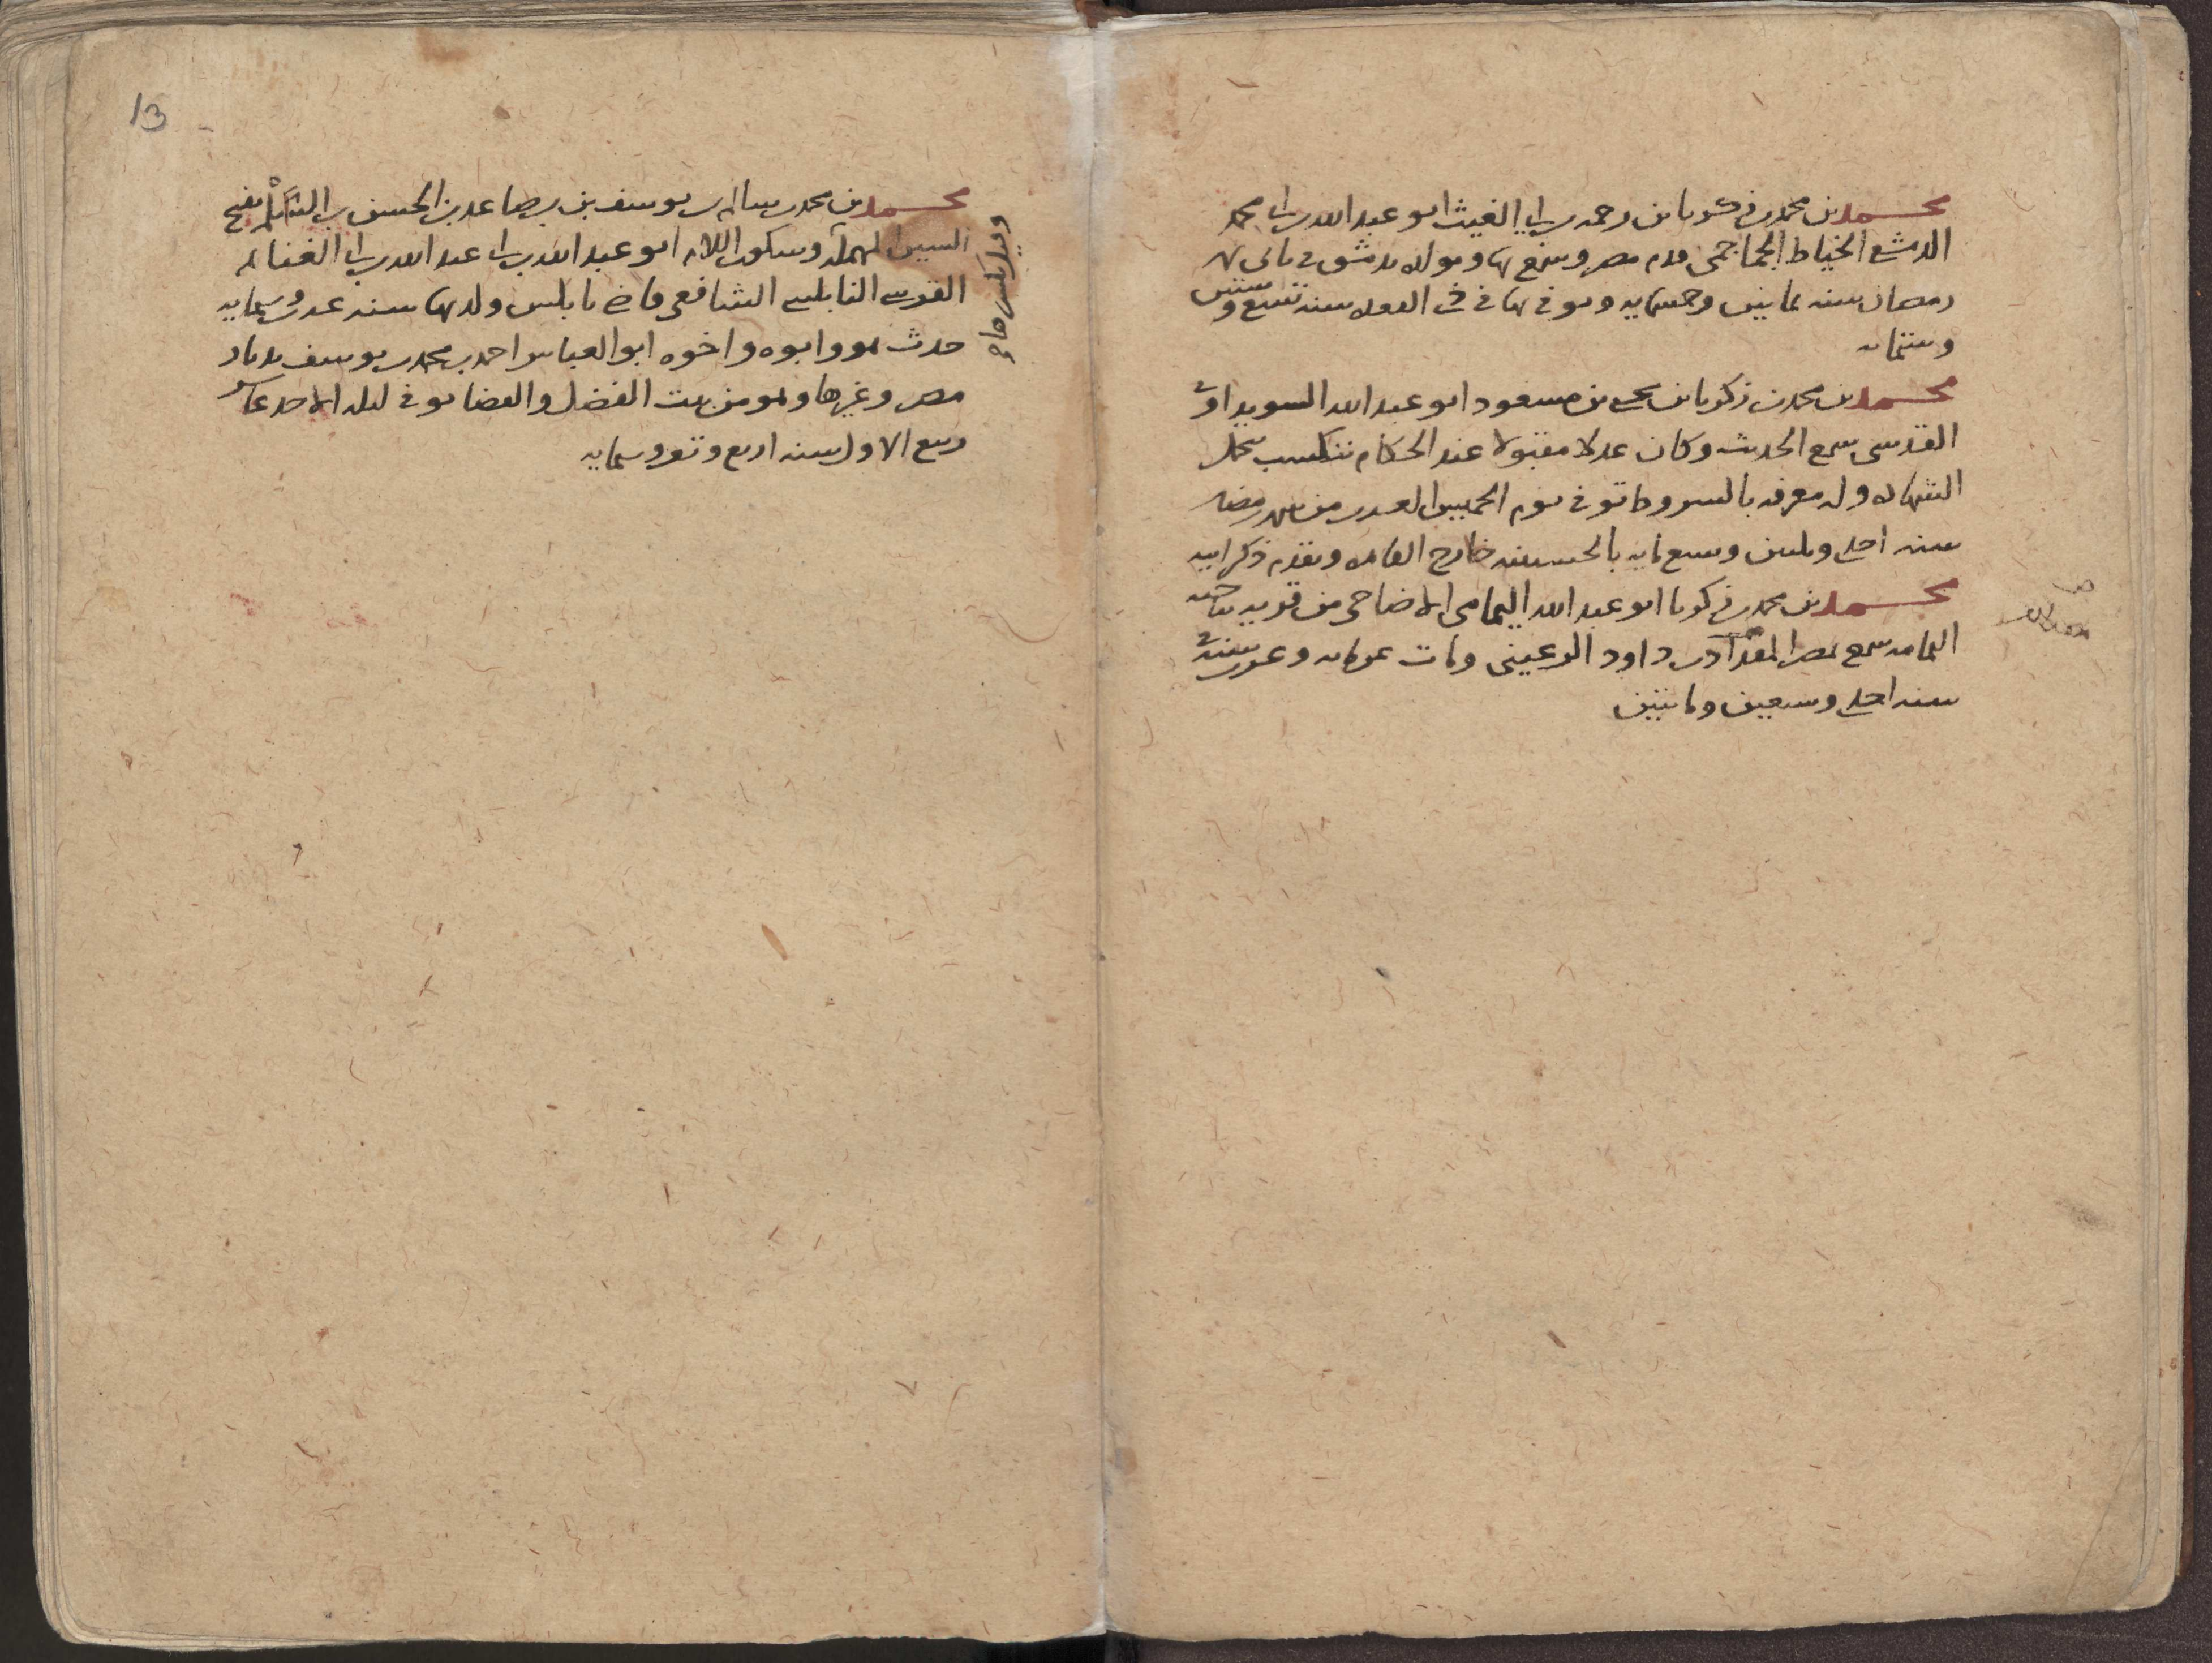 محمد بن محمد بن زكريا بن رحمه بن ابي الغيث ابو عبد الله بن ابي محمد
الدمشقي الخياط الجماجمي قدم مصر وسمع بها ومولده بدمشق في ثاني
رمضان سنه ثمانين وخمسمايه وتوفي بها في ذي القعده سنه تسع وستين
وستمايه
محمد بن محمد بن زكريا بن يحيى بن مسعود ابو عبد الله السويداوي
القدسي سمع الحديث وكان عدلا مقبولا عند الحكام يتكسب بتحمل
الشهاده وله معرفه بالشروط توفي يوم الخميس العشرين من شهر رمضان
سنه احدى وثلثين وسبع مايه بالحسينيه خارج القاهره وتقدم ذكر ابيه
محمد بن محمد بن زكريا ابو عبد الله اليمامي الاضاحي من قريه بناحيه
اليمامه سمع بمصر المقدام بن داود الرعيني ومات
سنه احدى وسبعين ومايتين
13
محمد بن محمد بن سالم بن يوسف بن صاعد بن الحسن بن السلم بفتح
السين المهمله وسكون اللام ابو عبد الله بن ابي عبد الله بن ابي الغنايم
القرشي النابلسي الشافعي قاضي نابلس ولد بها سنه عشر وستمايه
حدث هو وابوه واخوه ابو العباس احمد بن محمد بن يوسف بديار
مصر وغيرها وهو من بيت الفضل والقضا توفي ليله الاحد عاشر
ربيع الاول سنه اربع